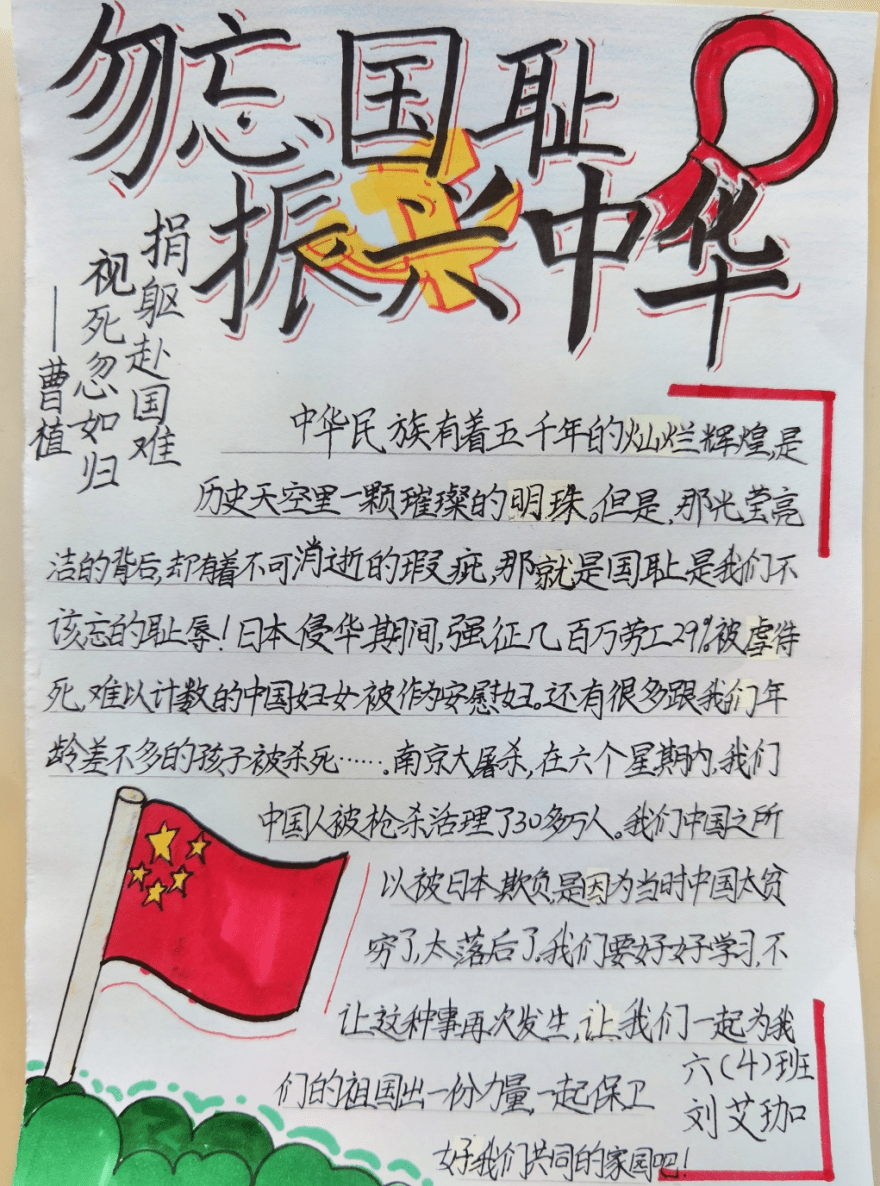 勿忘国耻
振兴中华
捐躯赴国难
视死忽如归
—曹植
中华民族有着五千年的灿烂辉煌,是
历史天空里一颗璀璨的明珠。但是,那光莹亮
洁的背后,却有着不可消逝的瑕疵,那就是国耻是我们不
该忘的耻辱!日本侵华期间,强征几百万劳工29%被虐待
死,难以计数的中国妇女被作为安慰妇。还有很多跟我们年
龄差不多的孩子被杀死……。南京大屠杀,在六个星期内,我们
中国人被枪杀活理了30多万人。我们中国之所
以被日本欺负,是因为当时中国太贫
穷了,太落后了。我们要好好学习,不
让这种事再次发生,让我们一起为我
们的祖国出一份力量,一起保卫
好我们共同的家园吧!
六(4)班
刘艾珈